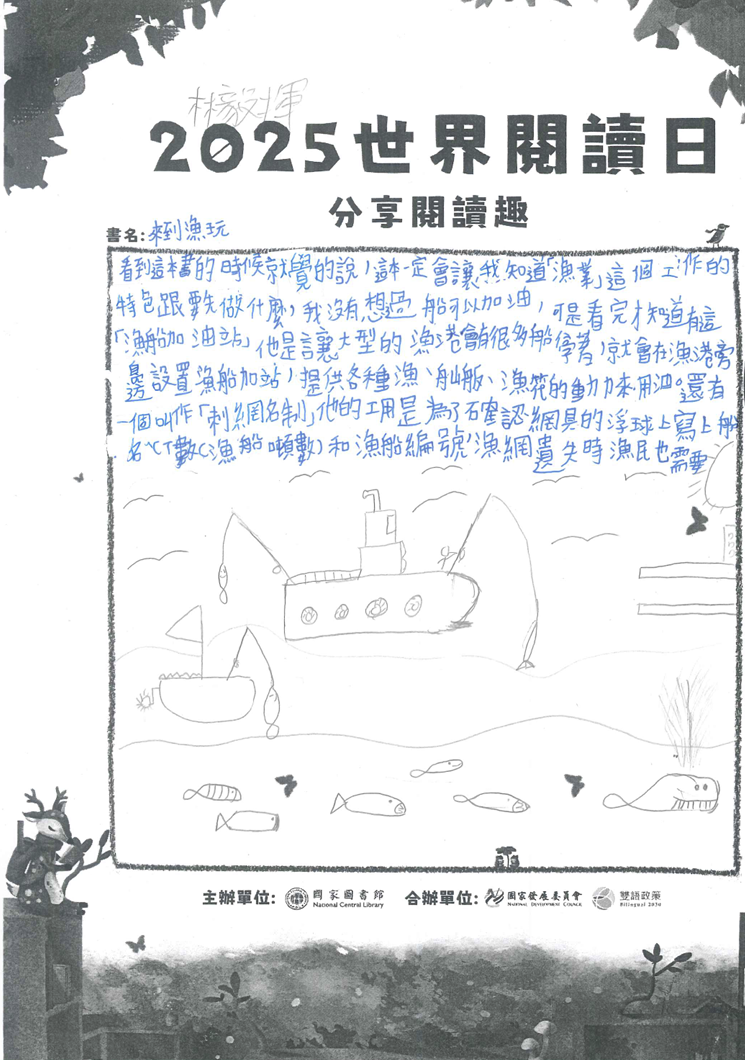 林毅軍
2025世界閱讀日
分享閱讀趣
書名:來到漁玩
看到這本書的時候就覺的說,這本一定會讓我知道「漁業」這個工作的
特色跟要先做什麼,我沒有想過船可以加油,可是看完才知道有這
「漁船加油站」他是讓大型的漁港會有很多船停著,就會在漁港旁
邊設置漁船加站,提供各種漁、舢舨、漁筏的動力來用油。還有
一個叫作「刺網名制」他的工用是為了確認網具的浮球上寫上船
名、CT數(漁船噸數)和漁船編號,漁網遺失時漁民也需要
主辦單位: 國家圖書館 合辦單位: 國家發展委員會 雙語政策
National Central Library NATIONAL DEVELOPMENT COUNCIL Bilingual 2030